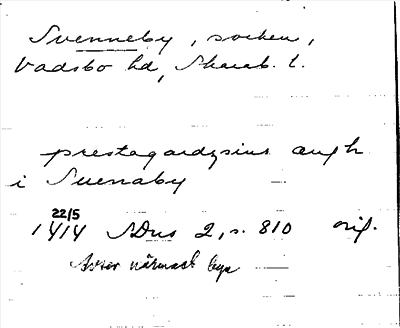 Svenneby, socken,
Vadsbo hd, Skarab. l.
prestagardzsins augh
i Suenaby
22/5
1414 SDns 2, s. 810 orig.
Avser närmast byn